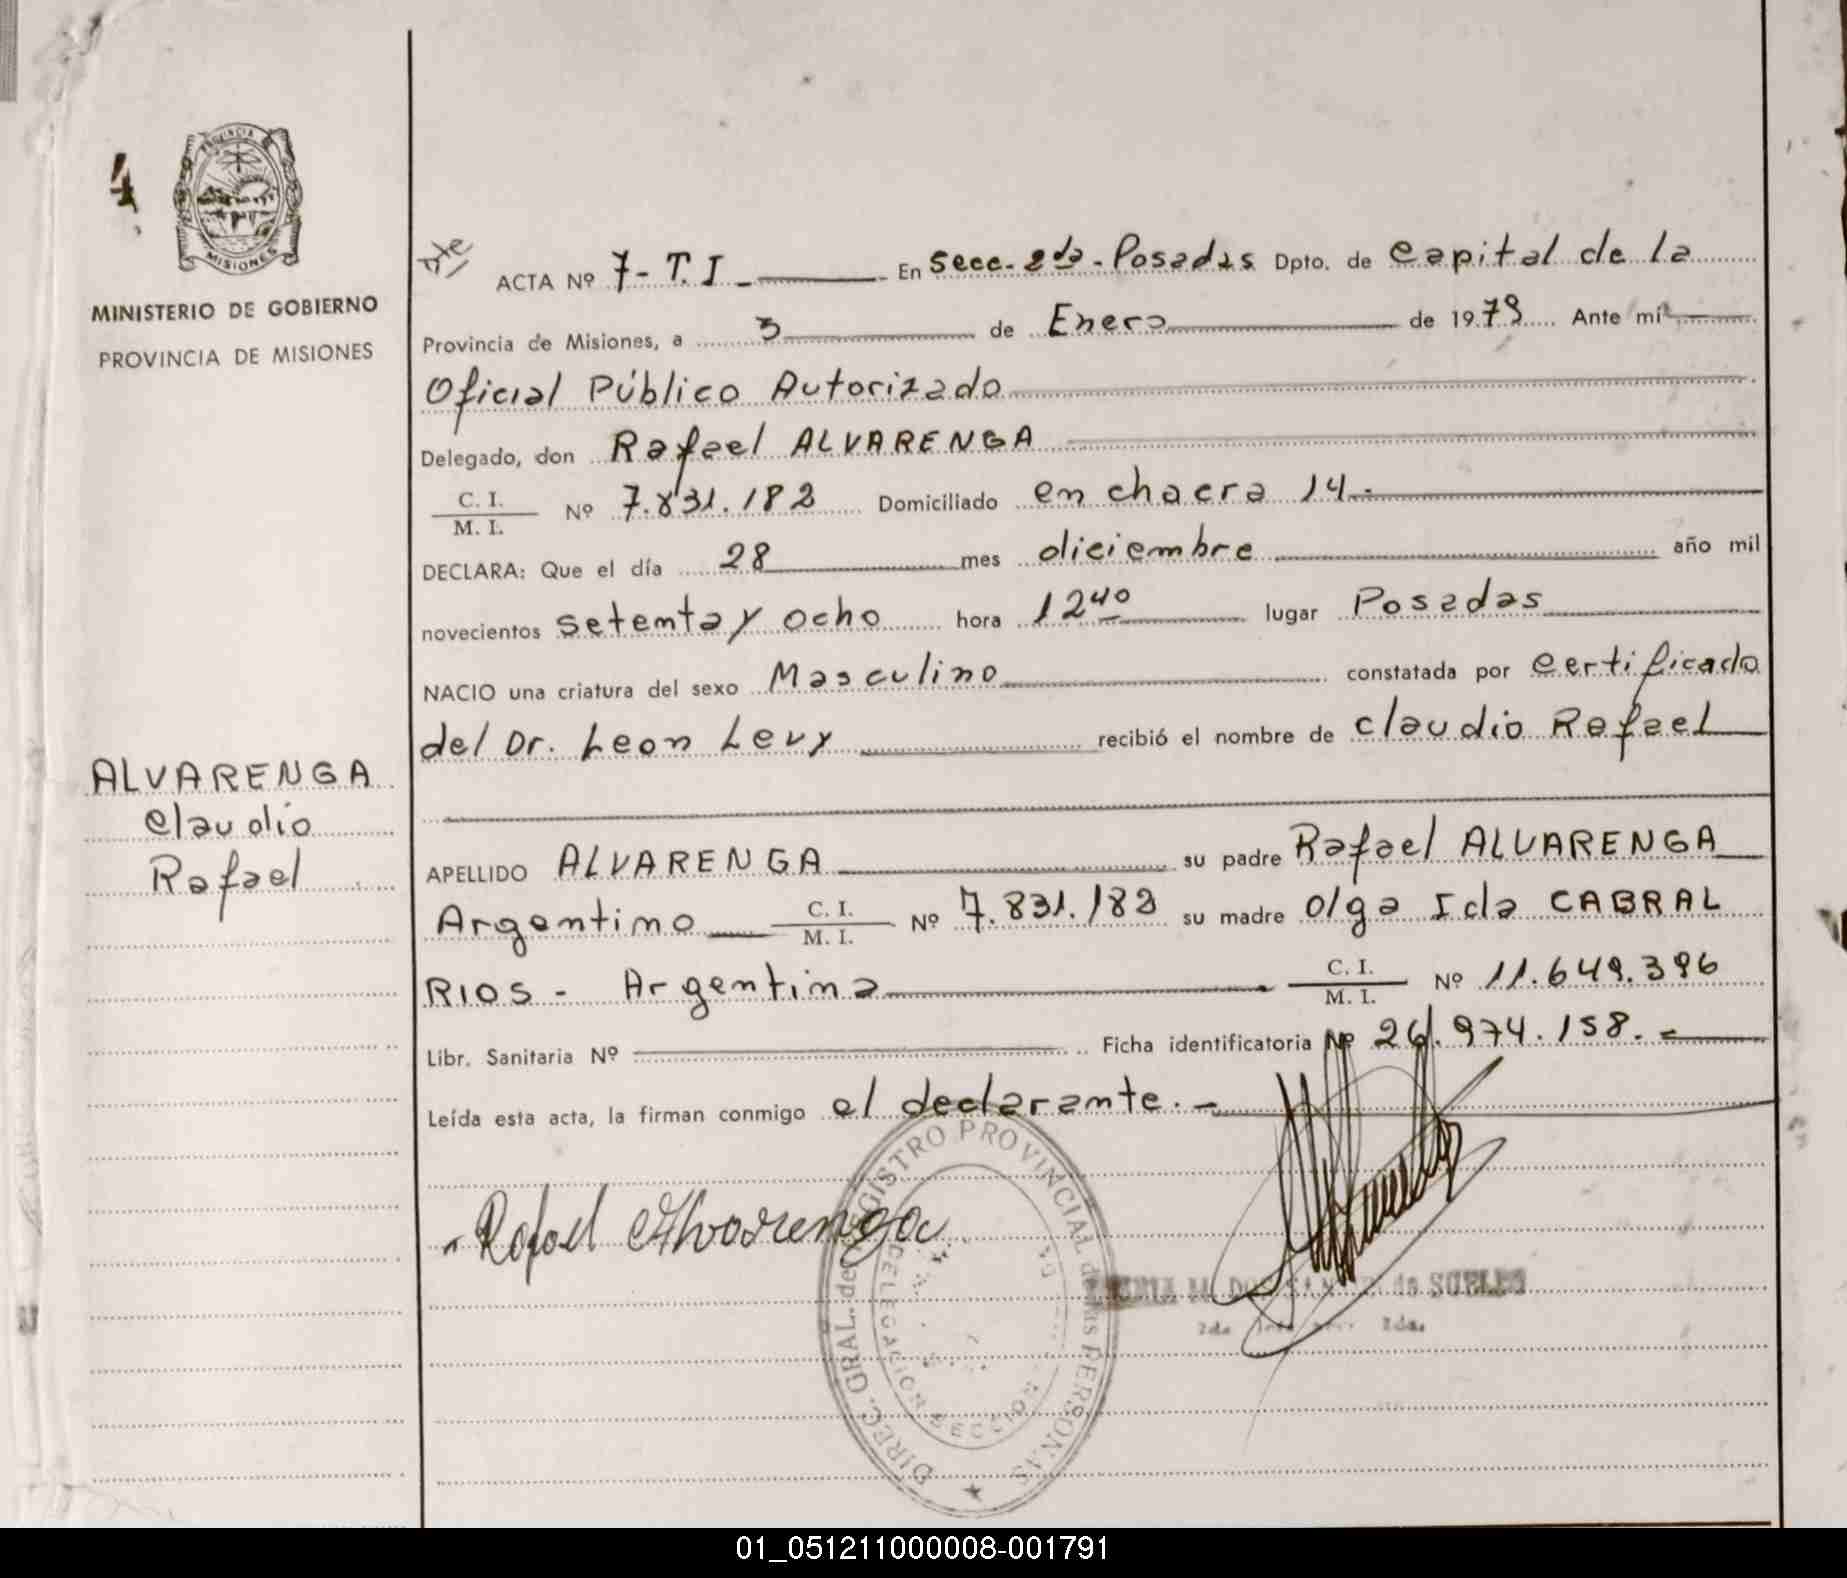 4
PROVINCIA
MISIONES
MINISTERIO DE GOBIERNO
PROVINCIA DE MISIONES
ALVARENGA
Claudio
Rafael
ACTA Nº 7-T.I - En Secc. 2da - Posadas Dpto. de Capital de la
Provincia de Misiones, a 3 de Enero de 1979 Ante mí
Oficial Público Autorizado
Delegado, don Rafael ALVARENGA
C. I.
M. I.
Nº 7.831.182 Domiciliado en chacra 14.-
DECLARA: Que el día 28 mes diciembre año mil
novecientos setenta y ocho hora 12 40 lugar Posadas
NACIO una criatura del sexo Masculino constatada por Certificado
del Dr. Leon Levy recibió el nombre de Claudio Rafael
APELLIDO ALVARENGA su padre Rafael ALVARENGA
Argentino C. I. M. I. Nº 7.831.182 su madre Olga Ida CABRAL
RIOS - Argentina C. I. M. I. Nº 11.649.396
Libr. Sanitaria Nº Ficha identificatoria Nº 26.974.158.-
Leída esta acta, la firman conmigo el declarante.-
Rafael Alvarenga
DIREC. GRAL. del REGISTRO PROVINCIAL de las PERSONAS
DELEGACION SECCION
2da.
01_051211000008-001791